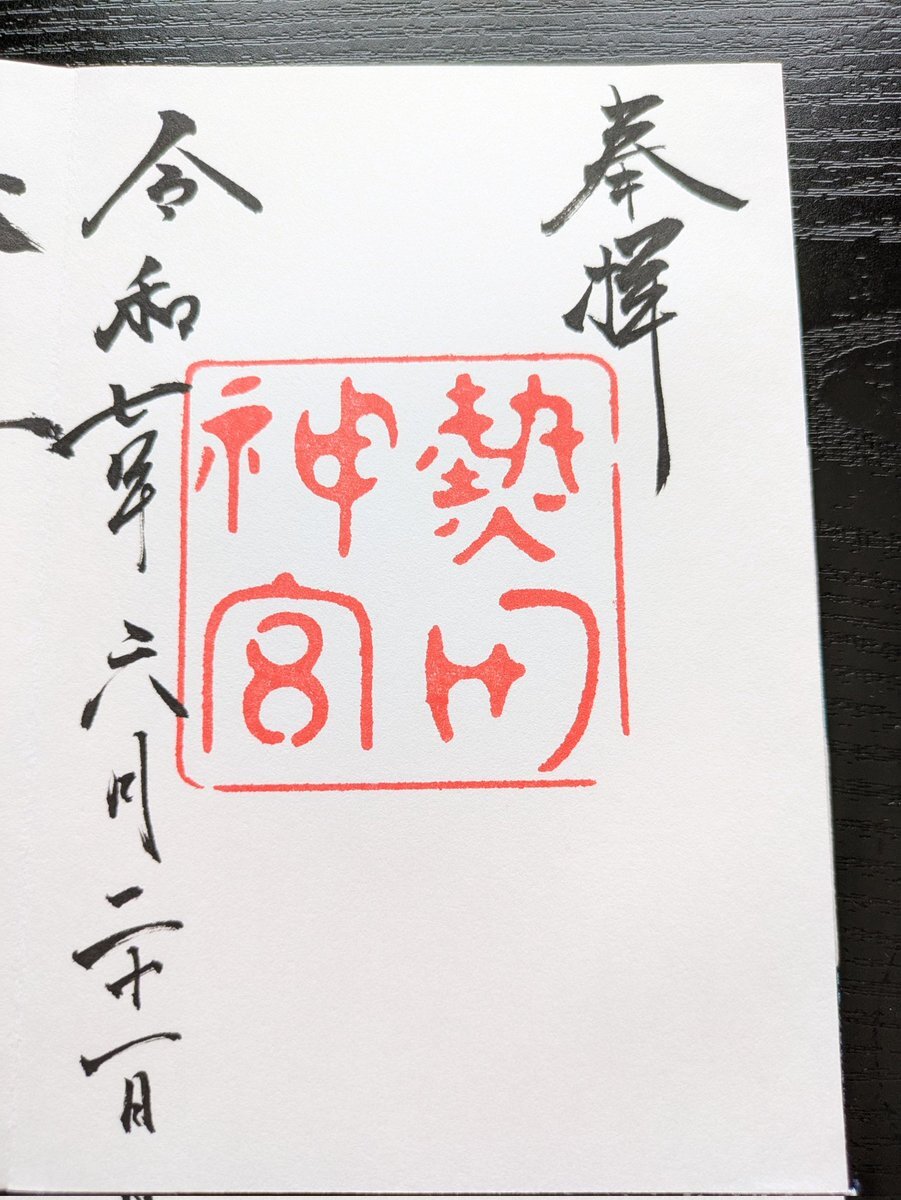 奉拝
熱田
神宮
令和七年六月二十一日